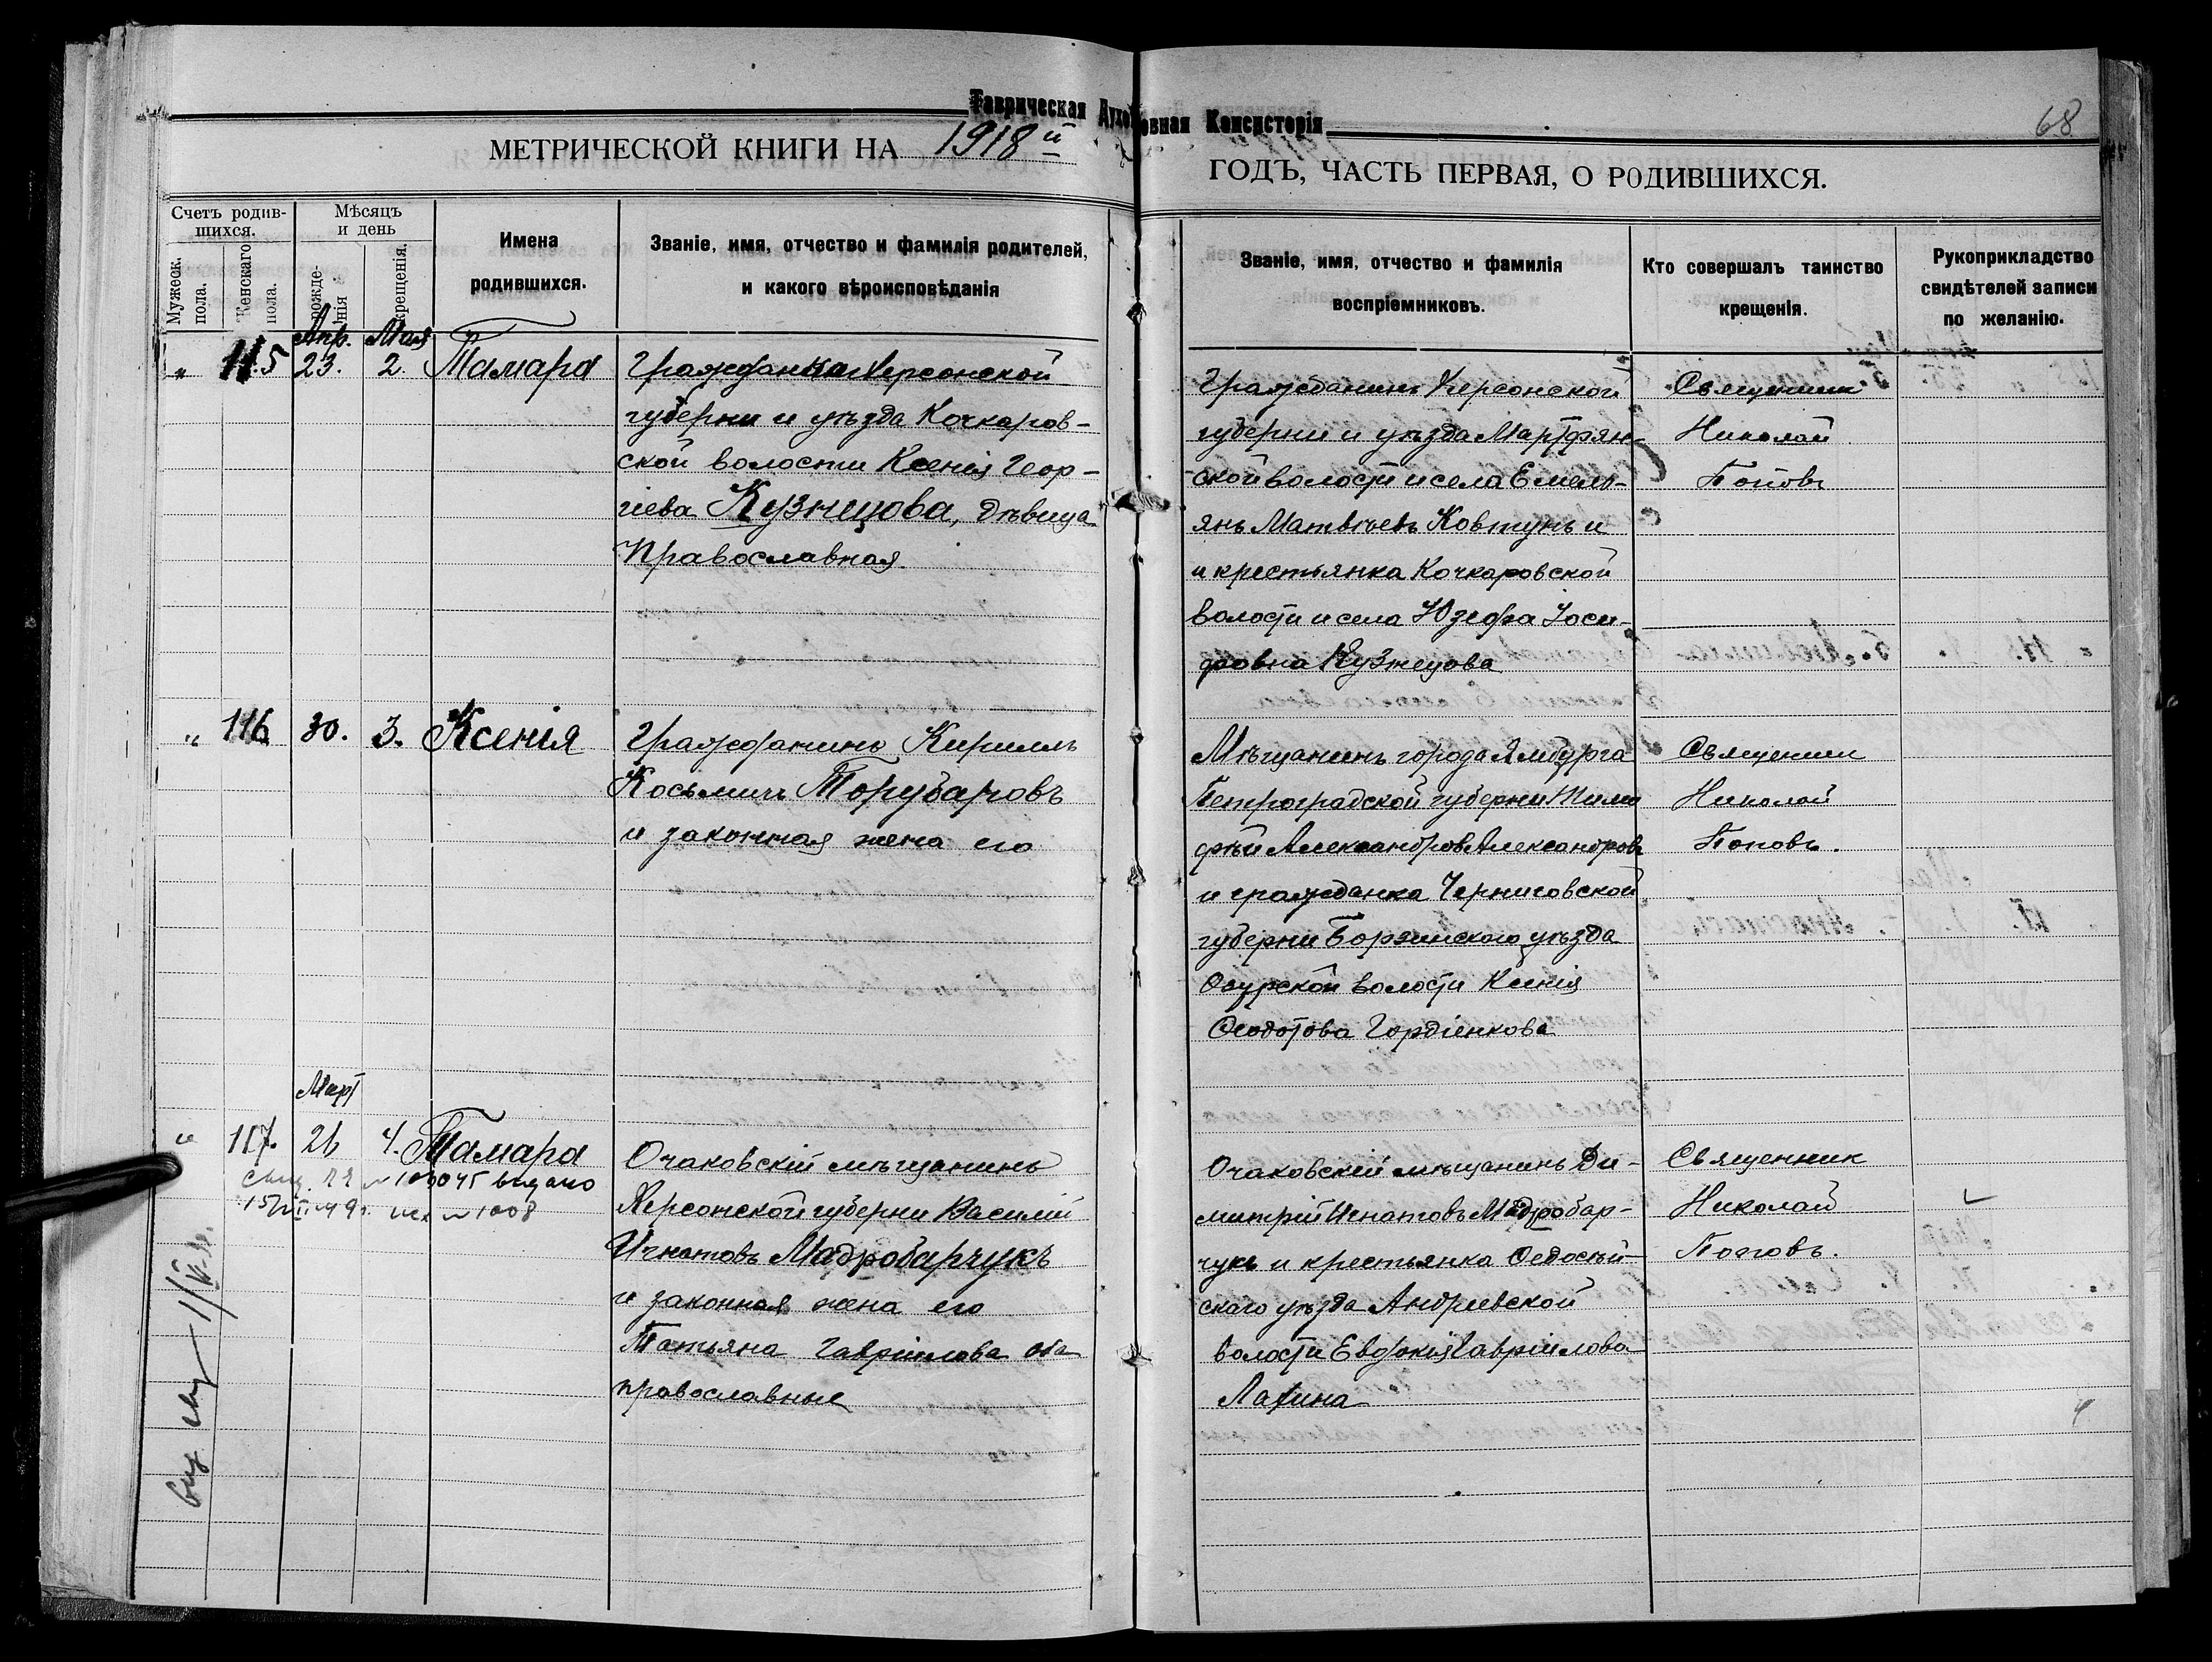 Таврическая Духовная Консисторія
68
МЕТРИЧЕСКОЙ КНИГИ НА 1918й
ГОДЪ, ЧАСТЬ ПЕРВАЯ, О РОДИВШИХСЯ.
Счетъ родив-
шихся.
Мужеск. пола.
Женскаго пола.
Мѣсяцъ
и день
рожде-
нія
крещенія.
Имена
родившихся.
Званіе, имя, отчество и фамилія родителей,
и какого вѣроисповѣданія
Званіе, имя, отчество и фамилія
воспріемниковъ.
Кто совершалъ таинство
крещенія.
Рукоприкладство
свидѣтелей записи
по желанію.
Апр. Мая
" 115 23. 2 Тамара
Гражданка Херсонской
губерни и уѣзда Кочкаров-
ской волости Ксенія Геор-
гіева Кузнецова, дѣвица
Православная.
Гражданинъ Херсонской
губернии и уѣзда Мартфян-
ской волости и села Емель-
янъ Матвѣевъ Ковтунъ и
и крестьянка Кочкаровской
волости и села Юзефа Іоси-
фовна Кузнецова
Священник
Николай
Поповъ
" 116 30. 3. Ксенія
Гражданинъ Кириллъ
Косьмичъ Торубаровъ
и законная жена его
Мѣщанинъ города Ямбурга
Петроградской губерни Тимо
фѣй Александров Александровъ
и гражданка Черниговской
губерни Борзинского уѣзда
волости Ксенія
Феодотова Гордіенкова
Священник
Николай
Поповъ.
Март
" 117. 26 4. Тамара
выдано
1008
Очаковскій мѣщанинъ
Херсонской губерни Василій
Игнатовъ Мадробарчукъ
и законная жена его
Татьяна Гавріилова оба
православные
Очаковскій мѣщанинъ Ди-
митрій Игнатовъ Мадробар-
чукъ и крестьянка Федосѣй-
скаго уѣзда Андреевской
волости Евдокія Гавріилова
Лапина
Священник
Николай
Поповъ.